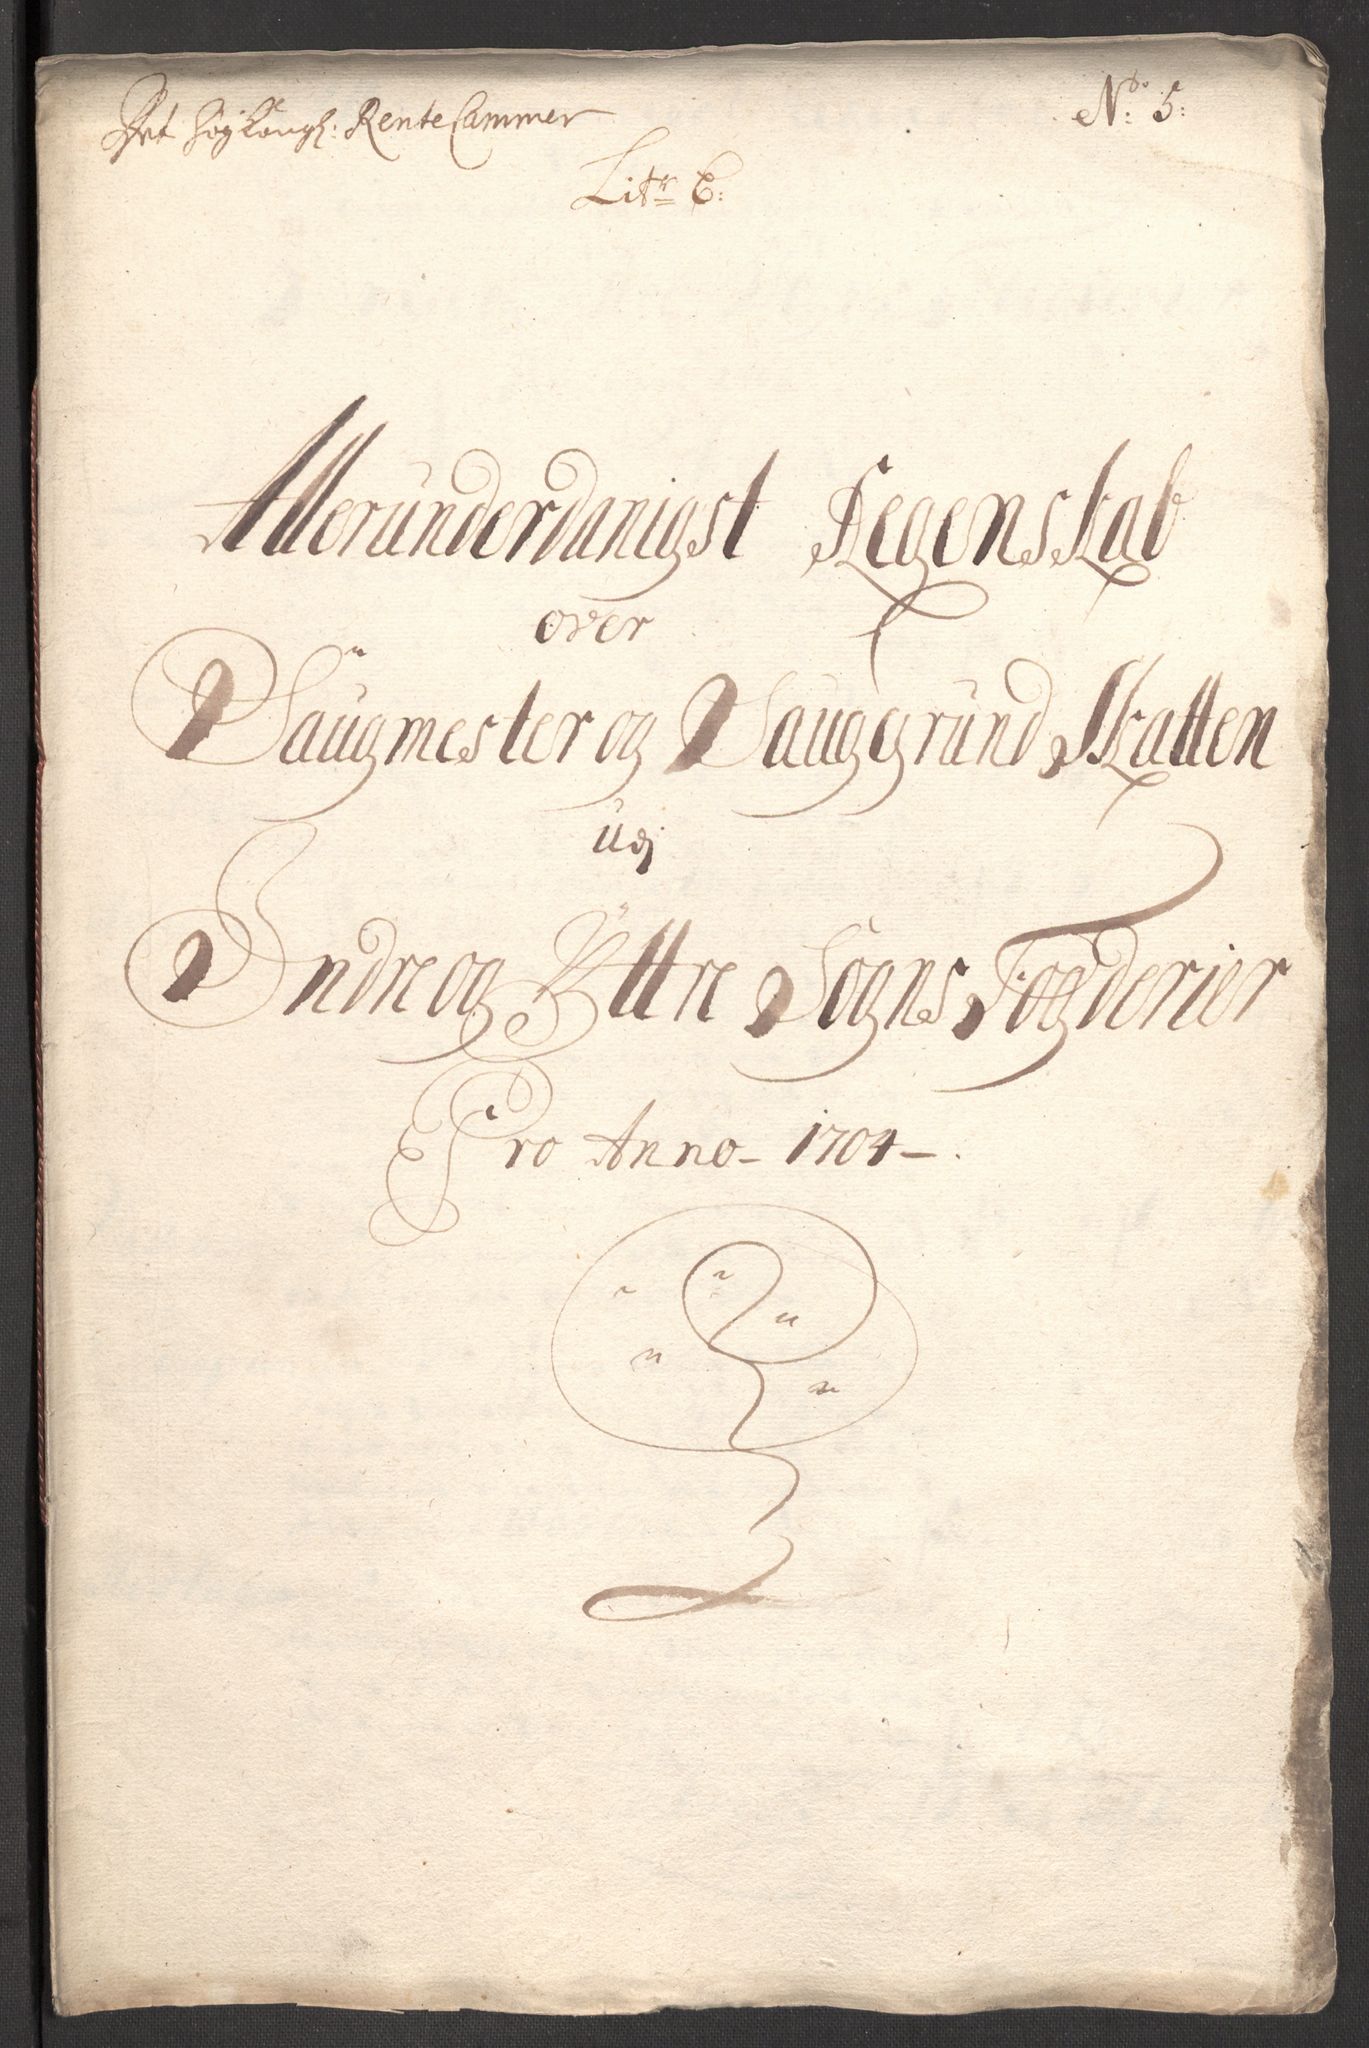 Det høykongl: Rente Cammer
No: 5:
Litr C:
Allerunderdanigst Regenskab
over
Saugmester og Sauggrund Skatten
udj
Indre og Yttre Sogns Fogderier
Pro Anno 1704